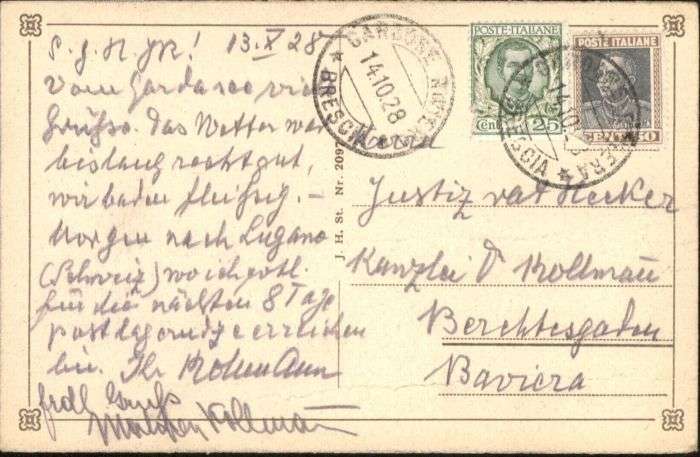 S. g. H. JR! 13.X 28
Vom Gardasee viele
Grüsse. Das Wetter war
bislang recht gut,
wir baden fleißig. -
Morgen nach Lugano
(Schweiz) wo ich evtl.
für die nächsten 8 Tage
postlagernd zu erreichen
bin. Ihr Kollmann
frdl Gruß
Kollmann
J. H. St. Nr. 2097
GARDONE RIVIERA
14.10.28
★ BRESCIA ★
POSTE·ITALIANE
Cent 25
POSTE ITALIANE
CENT. 50
GARDONE RIVIERA
14.10.28
BRESCIA ★
Herrn
Justizrat Hecker
Kanzlei D Kollmann
Berchtesgaden
Baviera